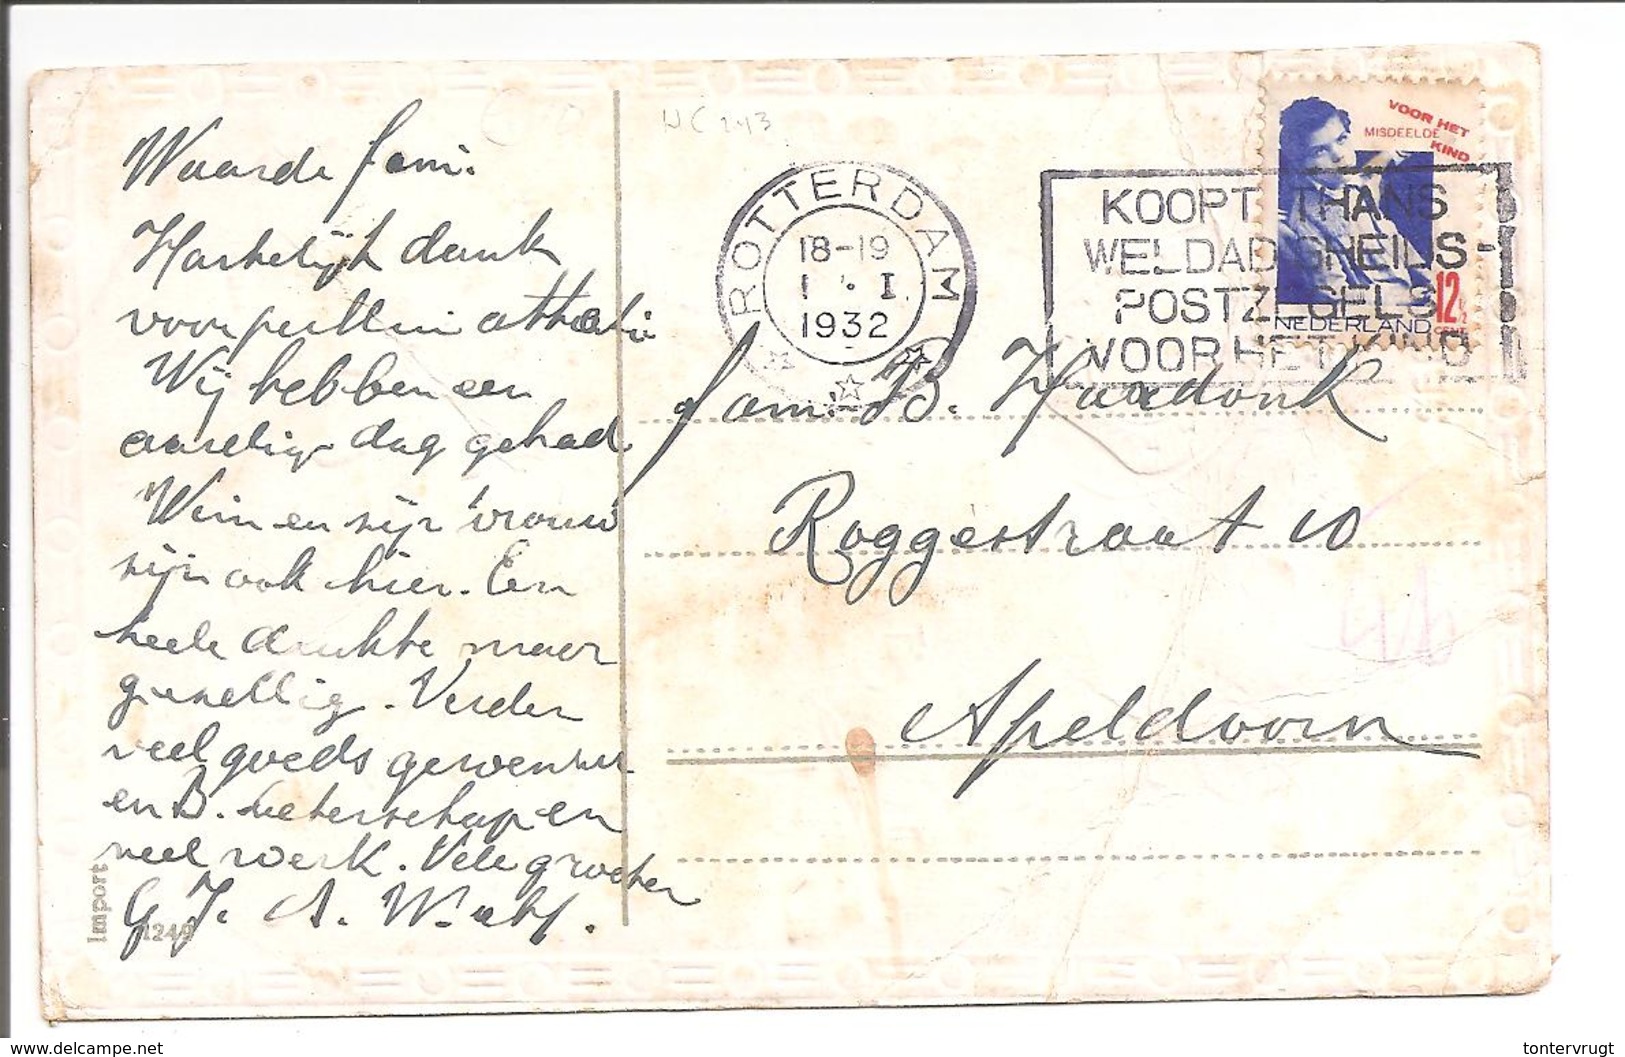 Waarde fam.
Hartelijk dank
voor jullie attentie
Wij hebben een
aardige dag gehad
Wim en zijn vrouw
zijn ook hier. Een
heele drukte maar
gezellig. Verder
veel goeds gewenscht
en B. beterschap en
veel werk. Vele groeten
G. J. A. W.
Import
1249
NC 243
ROTTERDAM
18-19
1 I
1932
KOOPT THANS
WELDADIGHEIDS-
POSTZEGELS
VOOR HET KIND
VOOR HET
MISDEELDE
KIND
12½
CENT
NEDERLAND
fam. B. Hardonk
Roggestraat 10
Apeldoorn
www.delcampe.net
tontervrugt